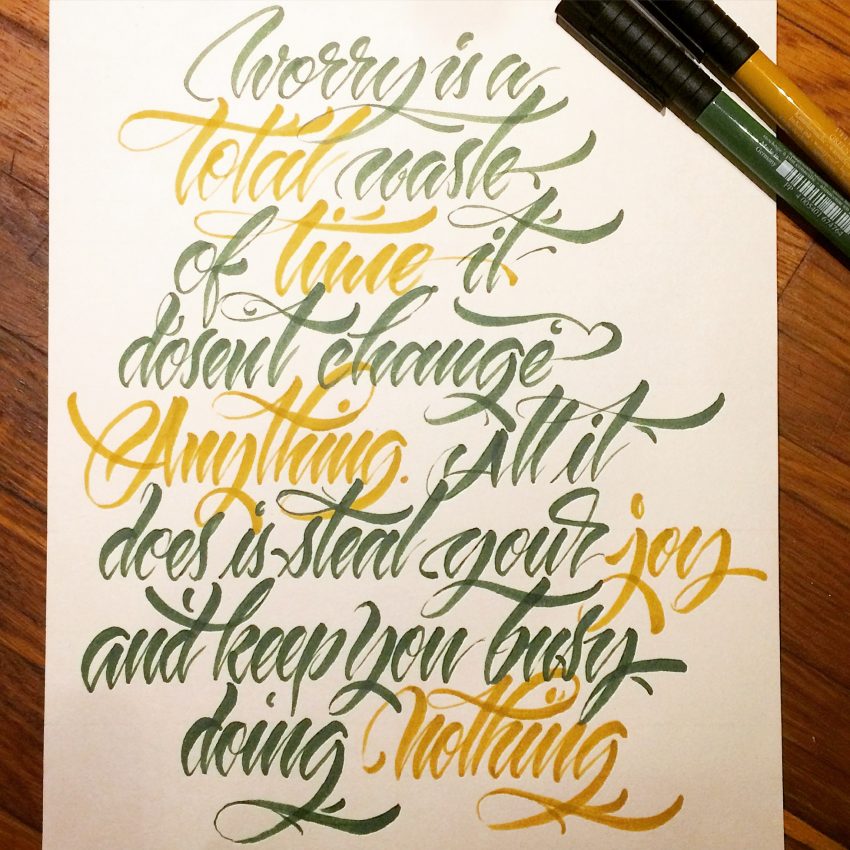 Worry is a
total waste
of time it
dosent change
Anything. All it
does is steal your joy
and keep you busy
doing Nothing
Made in
Germany